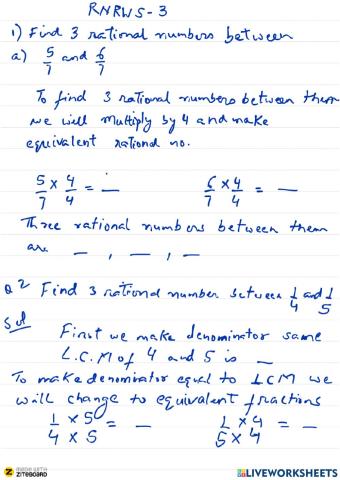 RNRWS-3
1) Find 3 rational numbers between
a) 5/7 and 6/7
To find 3 rational numbers between them
we will multiply by 4 and make
equivalent rational no.
5/7 × 4/4 = _ 6/7 × 4/4 = _
Three rational numbers between them
are _ , _ , _
Q2 Find 3 rational number between 1/4 and 1/5
Sol
First we make denominator same
L.C.M of 4 and 5 is _
To make denominator equal to LCM we
will change to equivalent fractions
1 × 5 / 4 × 5 = _ 1 × 4 / 5 × 4 = _
MADE WITH
ZITEBOARD
LIVEWORKSHEETS